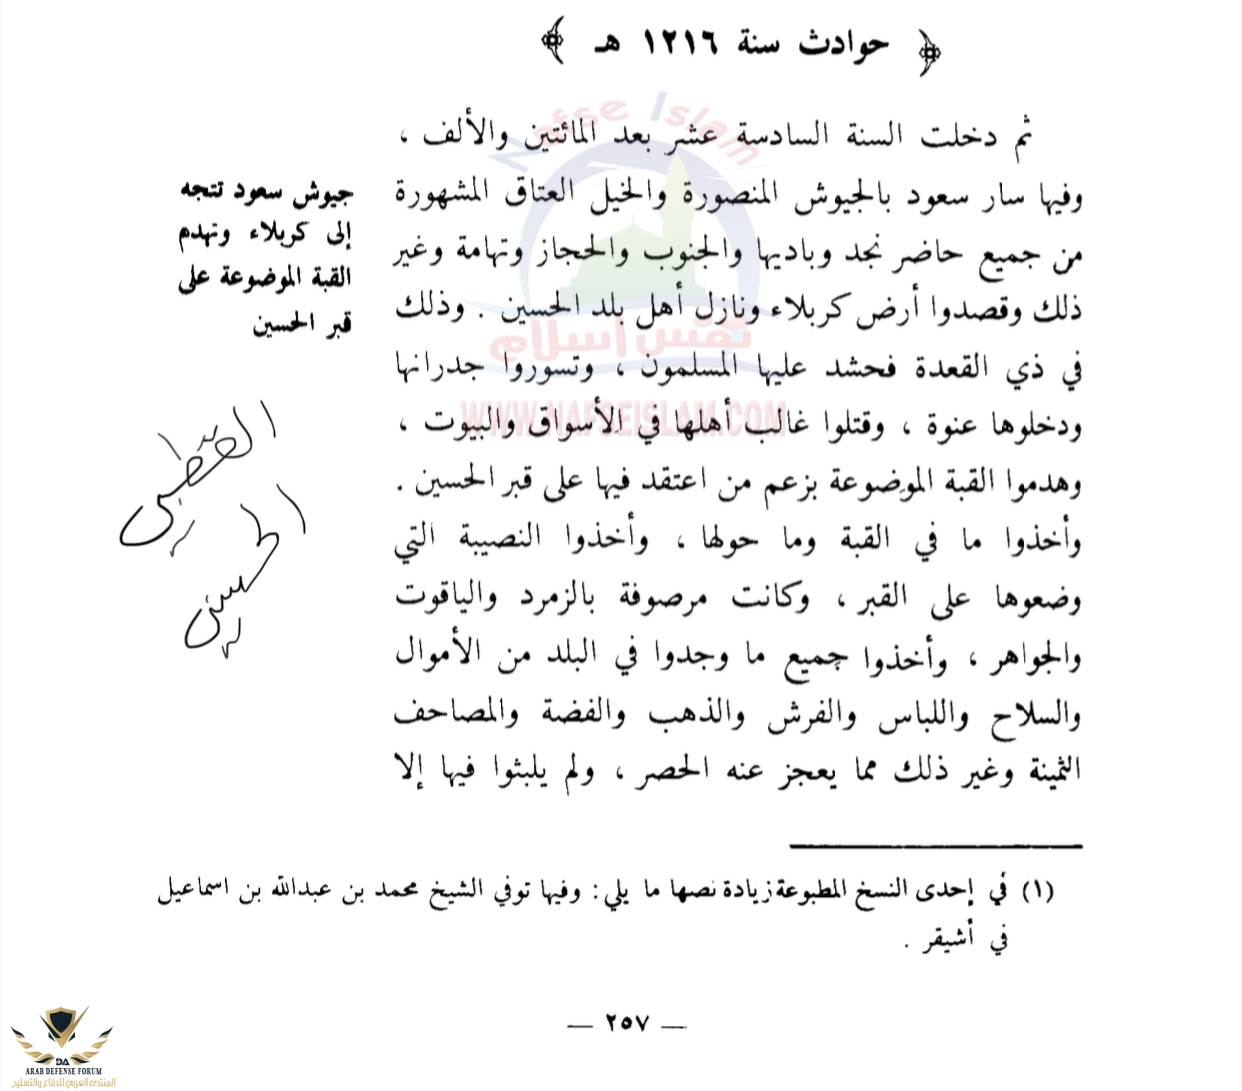 حوادث سنة ١٢١٦ هـ
ثم دخلت السنة السادسة عشر بعد المائتين والألف ،
وفيها سار سعود بالجيوش المنصورة والخيل العتاق المشهورة
من جميع حاضر نجد وباديها والجنوب والحجاز وتهامة وغير
ذلك وقصدوا أرض كربلاء ونازل أهل بلد الحسين . وذلك
في ذي القعدة فحشد عليها المسلمون ، وتسوروا جدرانها
ودخلوها عنوة ، وقتلوا غالب أهلها في الأسواق والبيوت ،
وهدموا القبة الموضوعة بزعم من اعتقد فيها على قبر الحسين .
وأخذوا ما في القبة وما حولها ، وأخذوا النصيبة التي
وضعوها على القبر ، وكانت مرصوفة بالزمرد والياقوت
والجواهر ، وأخذوا جميع ما وجدوا في البلد من الأموال
والسلاح واللباس والفرش والذهب والفضة والمصاحف
الثمينة وغير ذلك مما يعجز عنه الحصر ، ولم يلبثوا فيها إلا
جيوش سعود تتجه
إلى كربلاء وتهدم
القبة الموضوعة على
قبر الحسين
القطبي
الحسني
(١) في إحدى النسخ المطبوعة زيادة نصها ما يلي : وفيها توفي الشيخ محمد بن عبدالله بن اسماعيل
في أشيقر .
— ٢٥٧ —
Nafse Islam
نفس اسلام
WWW.NAFSEISLAM.COM
DA
ARAB DEFENSE FORUM
المنتدى العربي للدفاع والتسليح